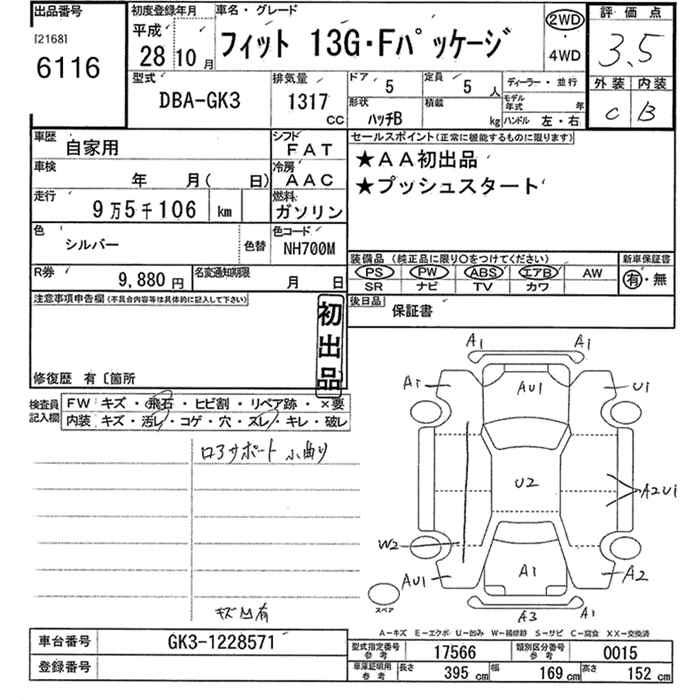 出品番号
[2168]
6116
初度登録年月
平成
28 10 月
車名・グレード
フィット 13G・Fパッケージ
2WD
・
4WD
評価点
3.5
外装 内装
C B
型式
DBA-GK3
排気量
1317
CC
ドア
5
定員
5 人
形状
ハッチB
積載
kg
ディーラー・並行
モデル年式 年
ハンドル 左・右
車歴
自家用
シフト
FAT
車検
年 月( 日)
冷房
AAC
走行
9万5千106 km
燃料
ガソリン
色
シルバー
色替
色コード
NH700M
R券
9,880 円
名変通知期限
月 日
セールスポイント(正常に機能するものに限ります)
★AA初出品
★プッシュスタート
装備品 (純正品に限り○をつけてください)
PS PW ABS エアB AW
SR ナビ TV カワ
新車保証書
有・無
後日品
保証書
注意事項申告欄(不具合内容等は具体的に記入して下さい)
初出品
修復歴 有〔箇所
検査員記入欄
FW キズ・飛石・ヒビ割・リペア跡・×要
内装 キズ・汚レ・コゲ・穴・スレ・キレ・破レ
ロアサポート 小曲り
キズ凹有
A1 A1
A1 AU1 U1
U2
A2U1
W2
AU1 A1 A2
A3 A1
スペア
A−キズ E−エクボ U−凹み W−補修跡 S−サビ C−腐食 XX−交換済
車台番号
GK3-1228571
登録番号
型式指定番号 参考
17566
類別区分番号 参考
0015
車庫証明用 参考
長さ 395 cm 幅 169 cm 高さ 152 cm